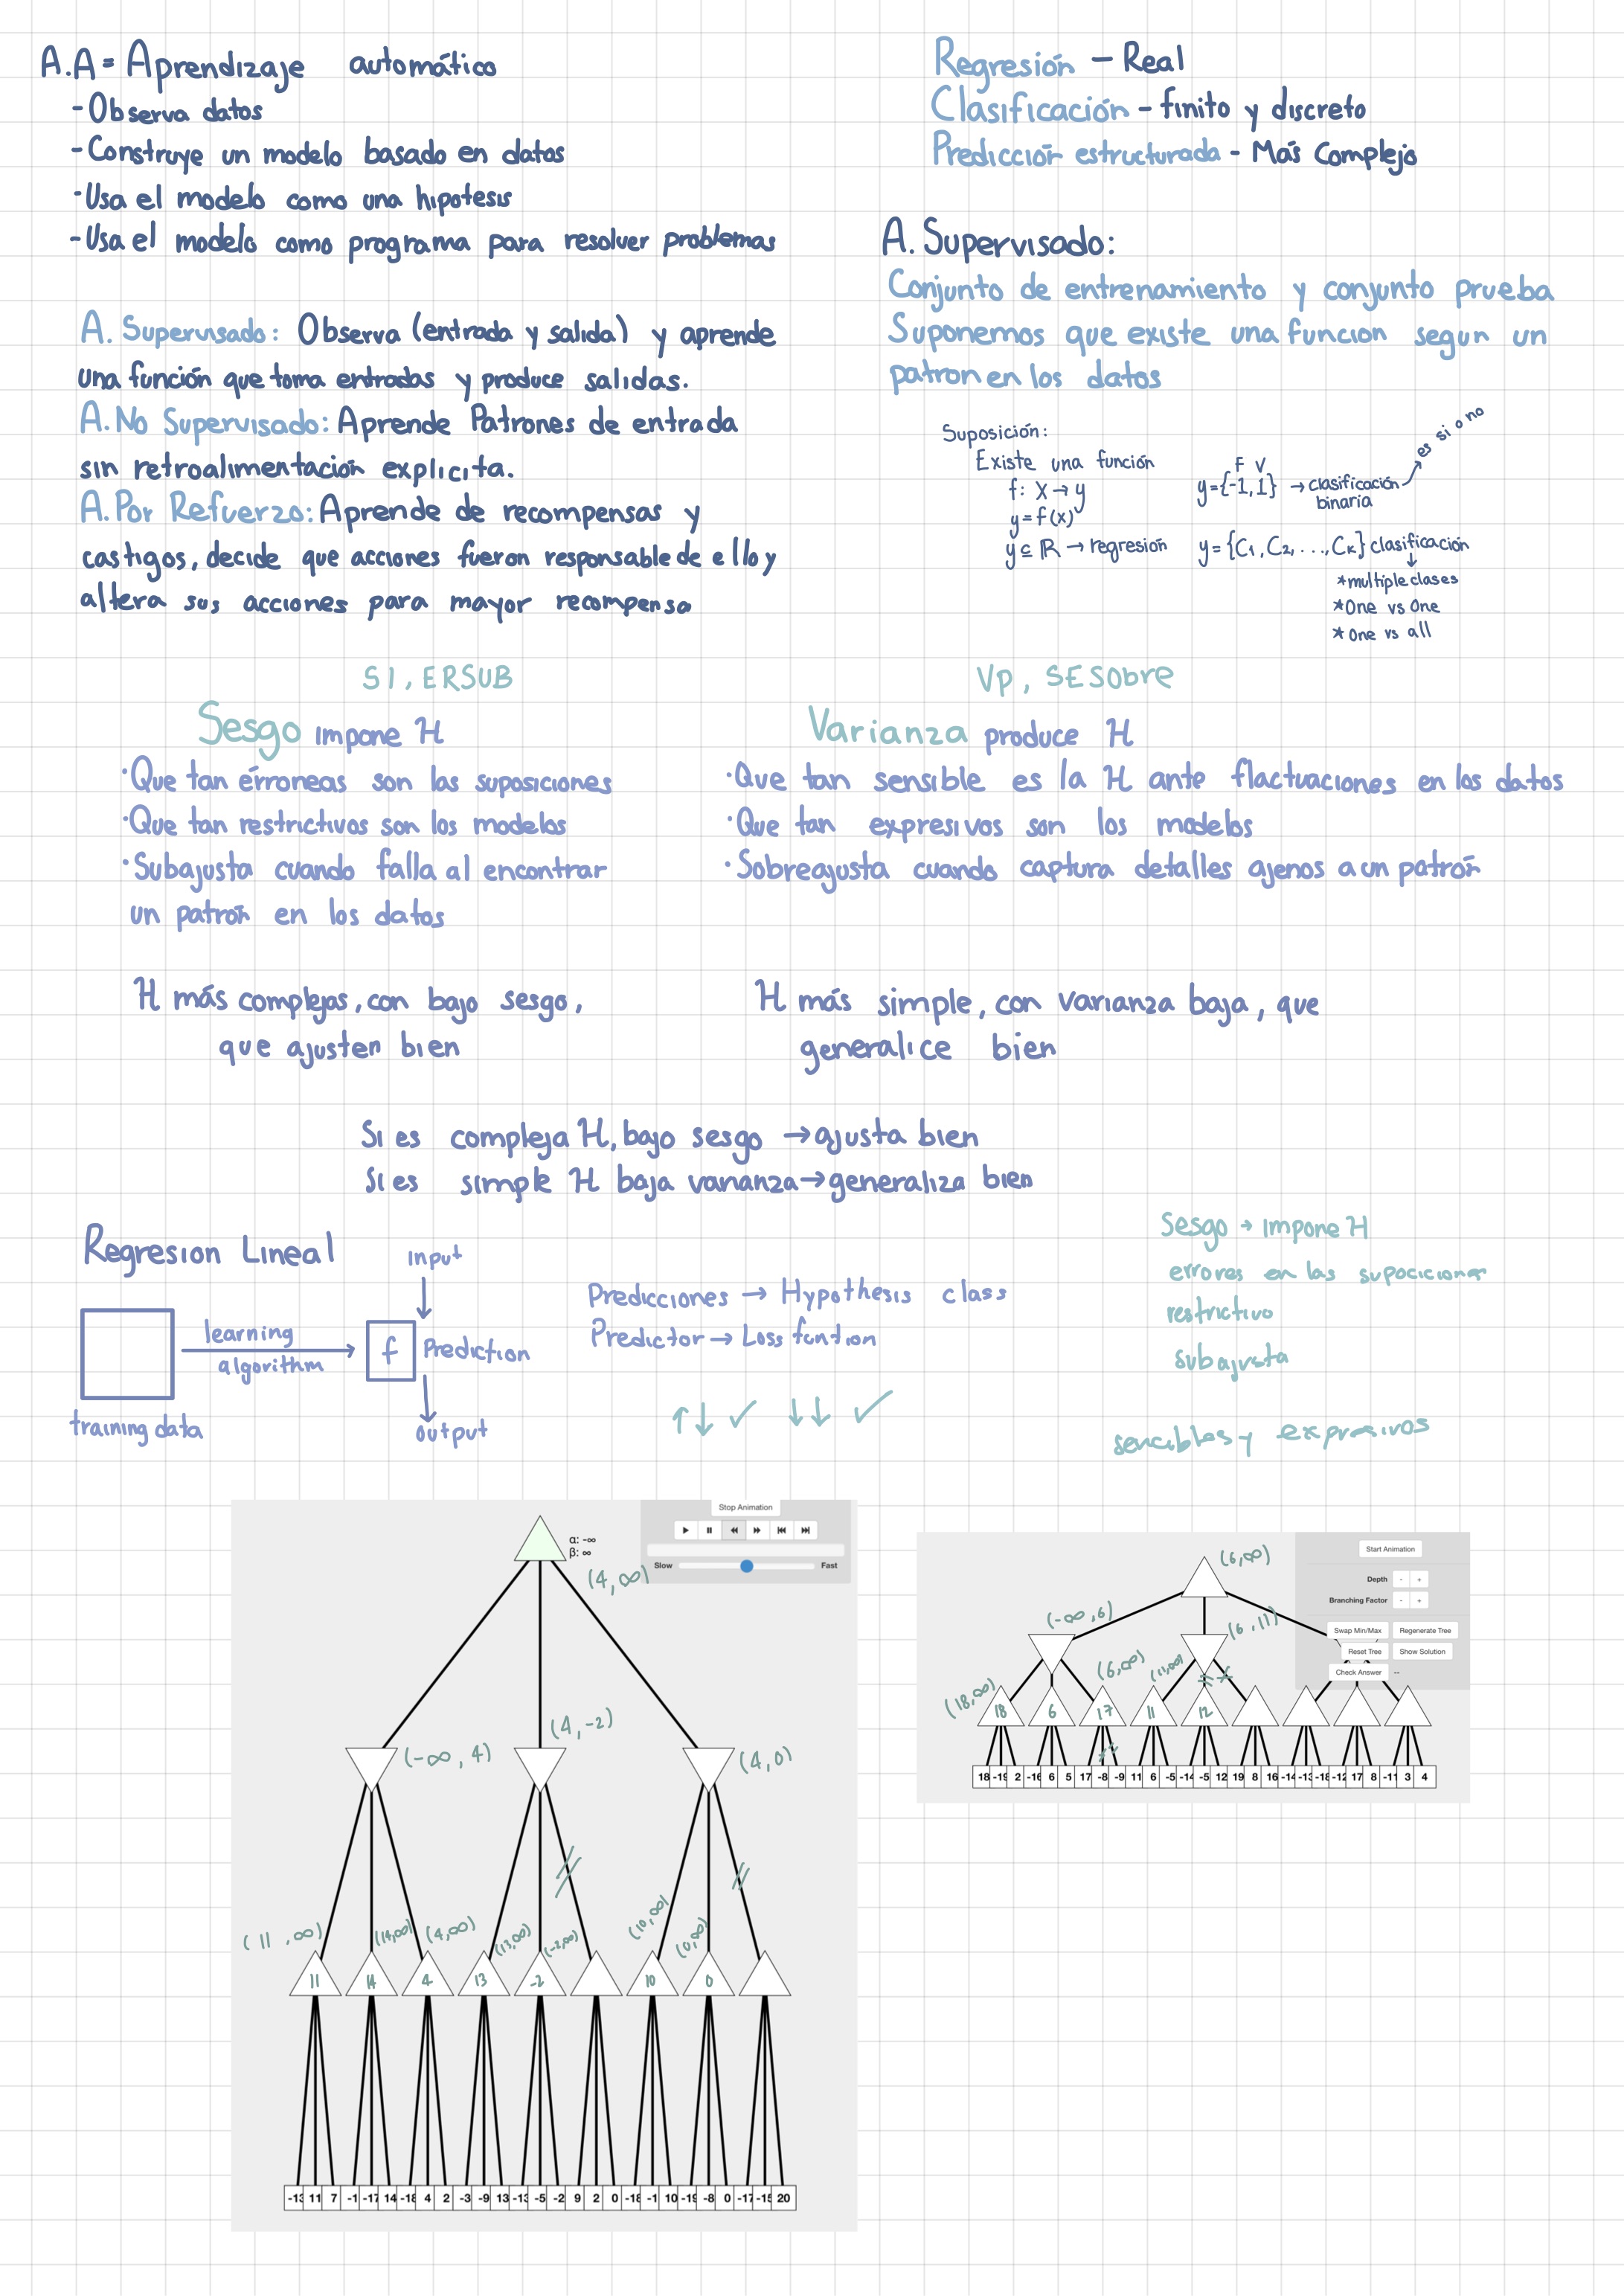 A.A = Aprendizaje automático
- Observa datos
- Construye un modelo basado en datos
- Usa el modelo como una hipotesis
- Usa el modelo como programa para resolver problemas
A. Supervisado: Observa (entrada y salida) y aprende
una función que toma entradas y produce salidas.
A. No Supervisado: Aprende Patrones de entrada
sin retroalimentación explicita.
A. Por Refuerzo: Aprende de recompensas y
castigos, decide que acciones fueron responsable de ello y
altera sus acciones para mayor recompensa
Regresión - Real
Clasificación - finito y discreto
Predicción estructurada - Más Complejo
A. Supervisado:
Conjunto de entrenamiento y conjunto prueba
Suponemos que existe una funcion segun un
patron en los datos
Suposición:
Existe una función
f: X → y
y = f(x)
y ⊆ ℝ → regresión
F V
y = {-1, 1} → clasificación binaria
es si o no
y = {C1, C2, ..., CK} clasificación
* multiple clases
* One vs One
* One vs all
SI, ERSUB
Sesgo impone H
· Que tan érroneas son las suposiciones
· Que tan restrictivos son los modelos
· Subajusta cuando falla al encontrar
un patrón en los datos
Vp, SESobre
Varianza produce H
· Que tan sensible es la H ante flactuaciones en los datos
· Que tan expresivos son los modelos
· Sobreajusta cuando captura detalles ajenos a un patrón
H más complejas, con bajo sesgo,
que ajusten bien
H más simple, con varianza baja, que
generalice bien
Si es compleja H, bajo sesgo → ajusta bien
Si es simple H baja varianza → generaliza bien
Regresion Lineal
training data
learning
algorithm
Input
f Prediction
output
Predicciones → Hypothesis class
Predictor → Loss funtion
↑↓ ✓ ↓↓ ✓
Sesgo → Impone H
errores en las suposiciones
restrictivo
subajusta
sencibles y expresivos
Stop Animation
Slow Fast
α: -∞
β: ∞
(4, ∞)
(-∞, 4) (4, -2) (4, 0)
(11, ∞) (14,∞) (4,∞) (13,∞) (-2,∞) (10,∞) (0,∞)
11 14 4 13 -2 10 0
-13 11 7 -1 -17 14 -18 4 2 -3 -9 13 -13 -5 -2 9 2 0 -18 -1 10 -19 -8 0 -17 -15 20
Start Animation
Depth - +
Branching Factor - +
Swap Min/Max Regenerate Tree
Reset Tree Show Solution
Check Answer --
(6, ∞)
(-∞, 6) (6, 11)
(18,∞) (6,∞) (11,∞)
18 6 17 11 12
18 -19 2 -16 6 5 17 -8 -9 11 6 -5 -14 -5 12 19 8 16 -14 -13 -18 -12 17 8 -11 3 4